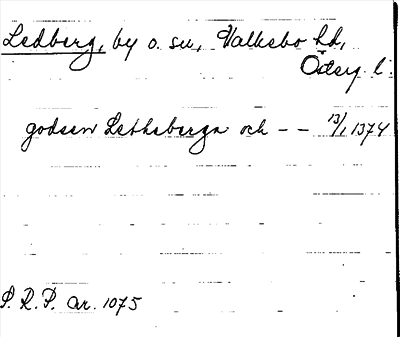 Ledberg, by o. sn, Valkebo hd,
Österg. l.
godsen Lethaberga och – – 13/1 1374
S. R. P. nr. 1075